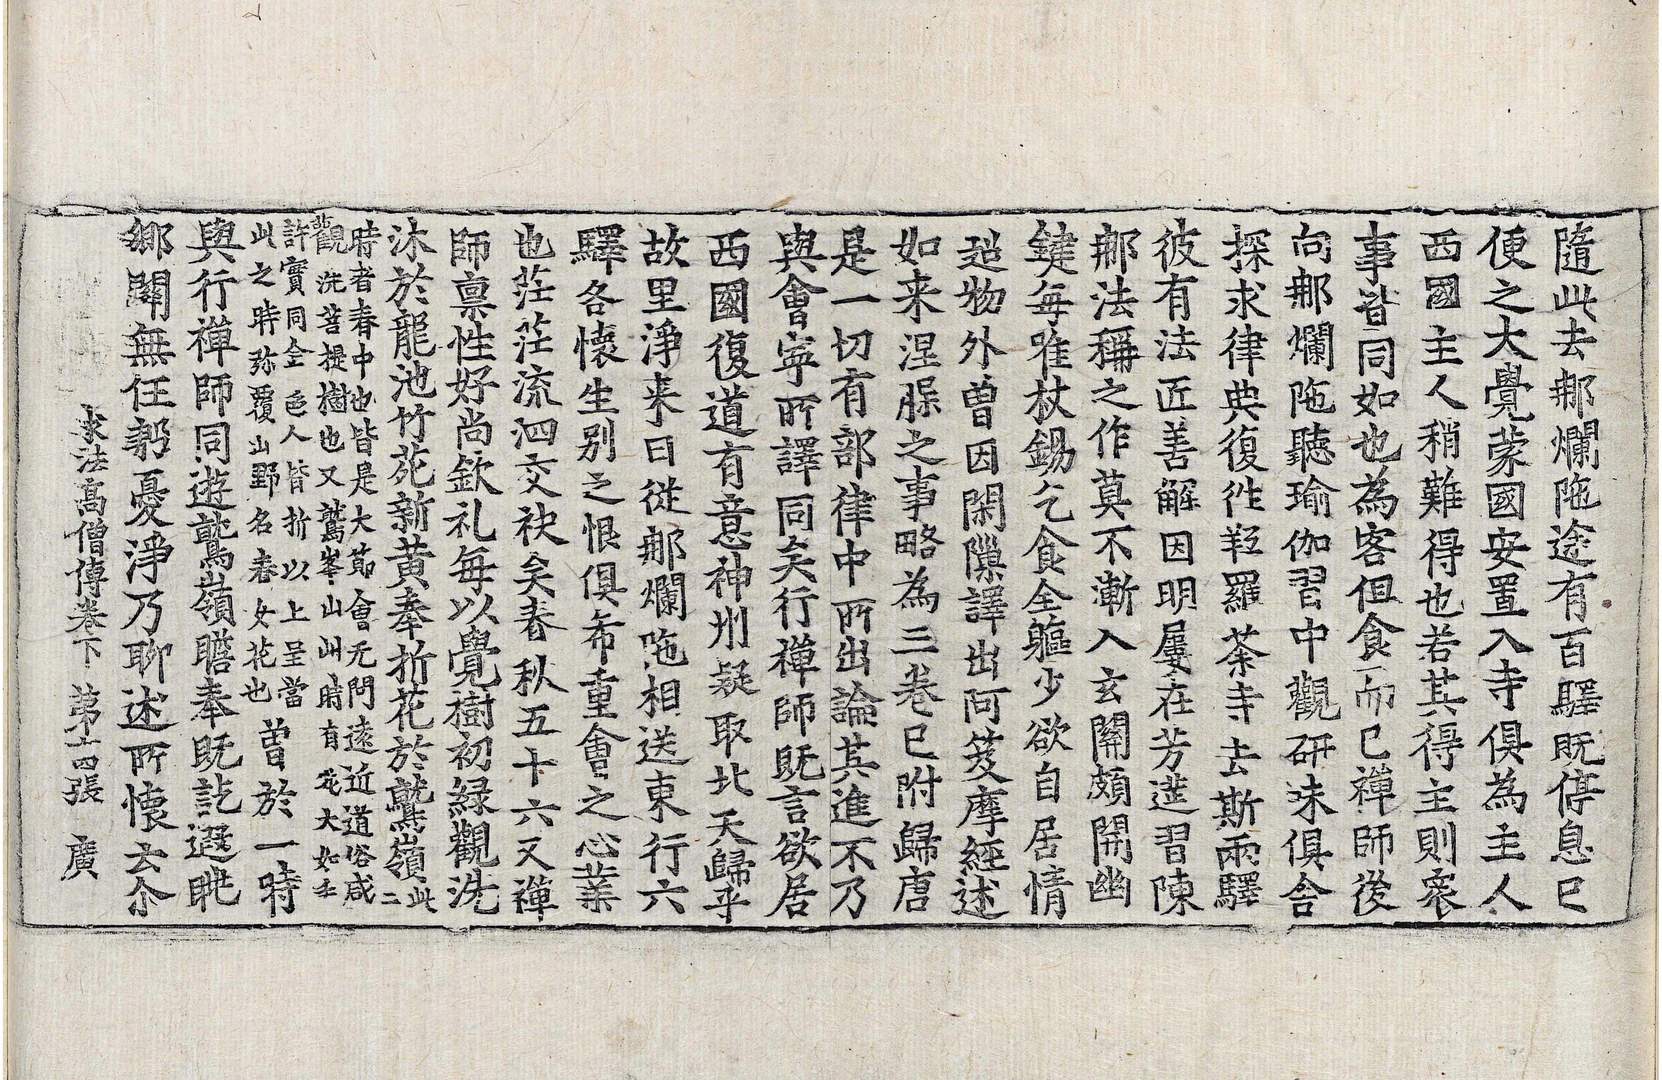 隨此去𨙻爛陁途有百驛既停息已
便之大覺蒙國安置入寺俱為主人
西國主人稍難得也若其得主則衆
事皆同如也為客但食而已禪師後
向𨙻爛陁聽瑜伽習中觀研味俱舍
探求律典復往羝羅荼寺去斯兩驛
彼有法匠善解因明屢在芳筵習陳
𨙻法稱之作莫不漸入玄關頗開幽
鍵每唯杖錫乞食全軀少欲自居情
超物外曾因閑隟譯出阿笈摩經述
如来涅脲之事略為三卷已附歸唐
是一切有部律中所出論其進不乃
與會寧所譯同矣行禪師既言欲居
西國復道有意神州擬取北天歸乎
故里淨来日從𨙻爛陁相送東行六
驛各懷生別之恨俱希重會之心業
也茫茫流泗交袂矣春秋五十六又禪
師禀性好尚欽礼每以覺樹初緑觀洗
沐於龍池竹菀新黄奉折花於鷲嶺此二
時者春中也皆是大節會无問遠近道俗咸
觀洗菩提樹也又鷲峯山此時有花大如手
許實同金色人皆折以上呈當
此之時弥覆山野名春女花也曾於一時
與行禪師同遊鷲嶺瞻奉既訖遐眺
鄉關無任殷憂淨乃聊述所懷云尒
求法高僧傳卷下 第十四張 廣